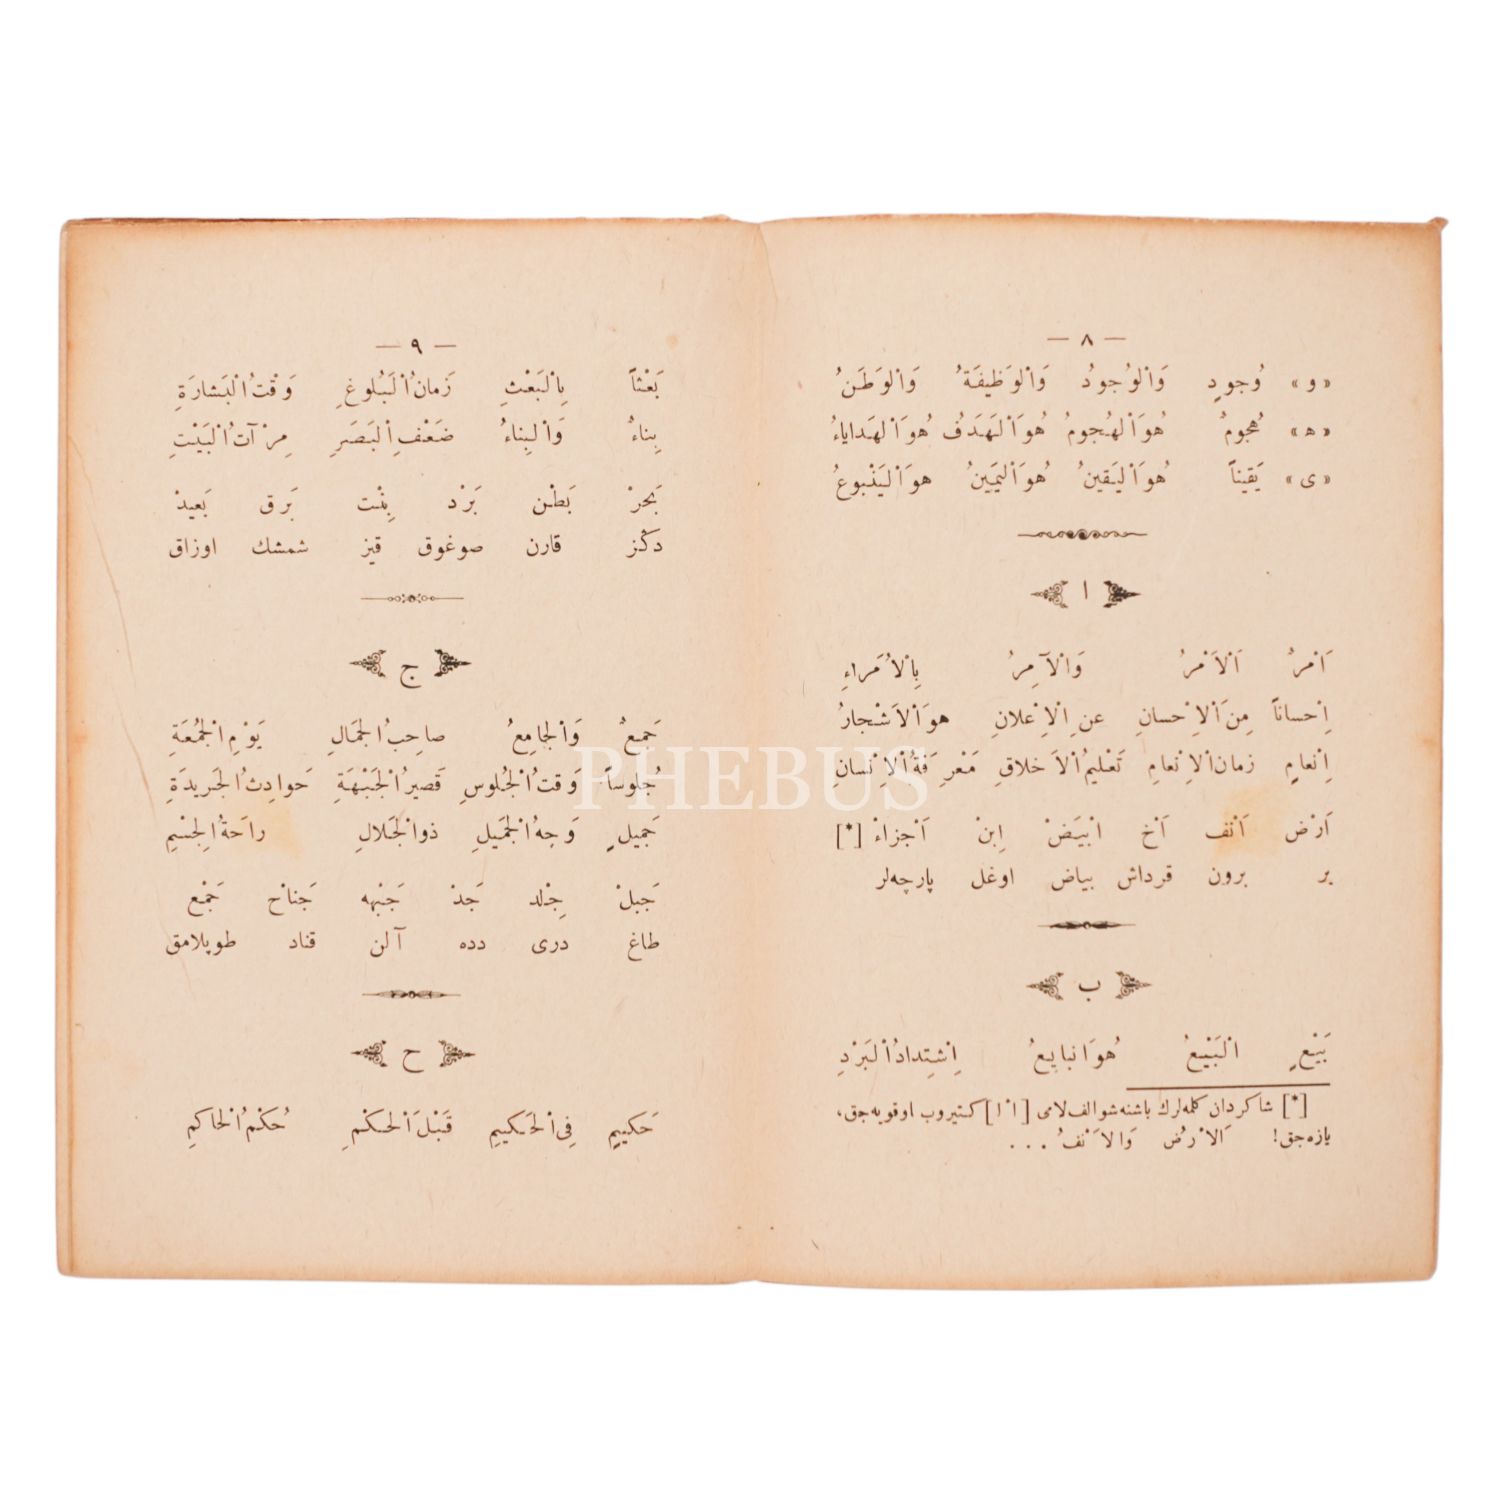 — ٨ —
«و» وُجودٍ وَالْوُجودُ وَالْوَظيفَةُ وَالْوَطَنُ
«ه» هُجومٌ هُوَالْهُجومُ هُوَالْهَدَفُ هُوَالْهَداياءُ
«ى» يَقيناً هُوَالْيَقينُ هُوَالْيَمينُ هوَالْيَنْبوعُ
ا
اَمْرٌ اَلْاَمْرُ وَالْآمِرُ بِالْاُمَراءِ
اِحْساناً مِنَ الْاِحْسانِ عنِ الْاِعْلانِ هوَالْاَشْجارُ
اِنْعامٍ زمان الْاِنْعامِ تَعْليمُ الْاَخلاقِ مَعْرِفَةُ الْاِنْسانِ
اَرْض اَنْف اَخ ابْيَضْ اِبنْ اَجْزاءْ [*]
ير برون قرداش بياض اوغل پارچه‌لر
ب
بَيْعٍ الْبَيْعُ هُوَالبايِعُ اِشْتِدادُ الْبَرْدِ
[*] شاكردان كلمه‌لرك باشنه شو الف لامى [اْلْ] كتيروب اوقويه‌جق،
يازه‌جق! اَلاَرْضُ وَالاَنْفُ ...
— ٩ —
بَعْثاً بِالْبَعْثِ زَمانُ الْبُلوغِ وَقْتُ الْبَشارَةِ
بِناءٌ وَالْبِناءُ ضَعْفِ الْبَصَرِ مِرْآتُ الْبَيْتِ
بَحرْ بَطْن بَرْد بِنْت بَرَق بَعيدْ
دكز قارن صوغوق قيز شمشك اوزاق
ج
جَمِعٌ وَالْجامِعُ صاحِبُ الْجَمالِ يَوْمِ الْجُمُعَةِ
جُلوساً وَقتُ الْجُلوسِ قَصيرُ الْجَبْهَةِ حَوادِثُ الْجَريدَةِ
جَميلٍ وَجهُ الْجَميلِ ذوالْجَلالِ راحَةُ الْجِسْمِ
جَبلْ جِلْد جَدْ جَبْهه جَناحْ جَمْع
طاغ درى دده آلن قناد طوپلامق
ح
حَكيمٍ فِي الْحَكيمِ قَبْلَ الْحُكْمِ حُكْمُ الْحاكمِ
PHEBUS